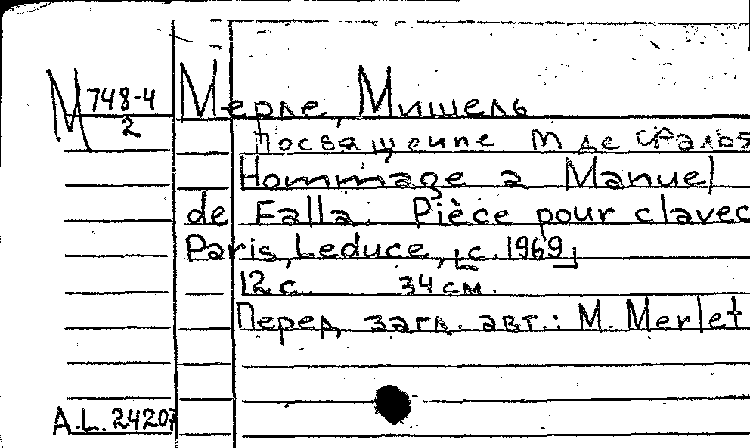 М 748-4
2
Мерле, Мишель
Посвящение М де Фалья
Hommage a Manuel
de Falla. Pièce pour clavec
Paris, Leduce, [c. 1969]
12 с. 34 см.
Перед загл. авт.: M. Merlet
A.L. 24207